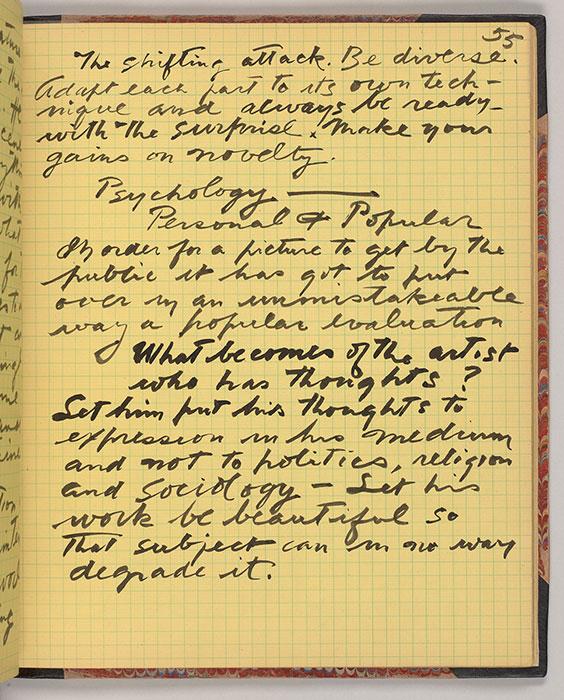 55
The shifting attack. Be diverse.
Adapt each part to its own tech-
nique and always be ready
with the surprise. Make your
gains on novelty.
Psychology —
Personal & Popular
In order for a picture to get by the
public it has got to put
over in an unmistakeable
way a popular evaluation
What becomes of the artist
who has thoughts?
Let him put his thoughts to
expression in his medium
and not to politics, religion
and Sociology — Let his
work be beautiful so
that subject can in no way
degrade it.